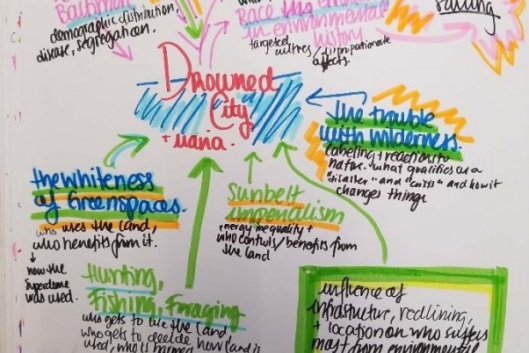 demographic distribution,
disease, segregation.
Race
in environmental
history
targeted
Drowned
City
the trouble
with wilderness.
labeling + reaction to
nature. what qualifies as a
"disaster" and "crisis" and how it
changes things
the whiteness
of Greenspaces.
who uses the land,
who benefits from it.
how the
Superdome
was used.
Sunbelt
Imperialism
energy inequality +
who controls/benefits from
the land
Hunting,
Fishing, Foraging
who gets to use the land
who gets to decide how land is
used, who is
influence of
infrastructure, redlining,
+ location on who suffers
most from environmental